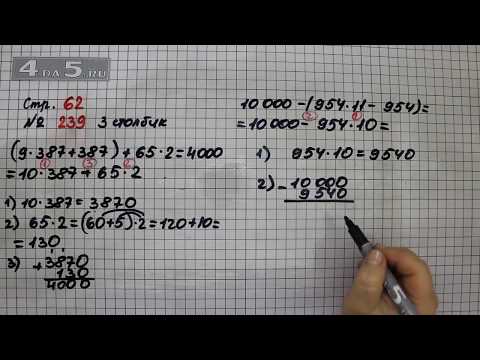 4DA5.RU
Стр. 62
№ 239 3 столбик
(9·387+387)+65·2=4000
1 3 2
=10·387+65·2
1) 10·387=3870
2) 65·2=(60+5)·2=120+10=
=130
3) +3870
130
4000
10 000-(954·11-954)=
2 1
=10 000-954·10=
1) 954·10=9540
2) -10 000
9 540